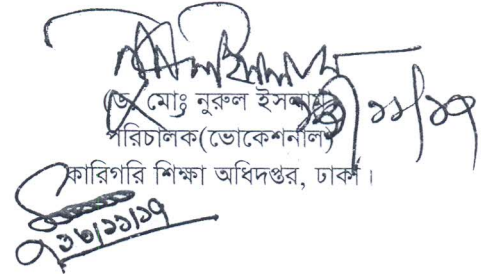 (ড. মোঃ নুরুল ইসলাম)
পরিচালক(ভোকেশনাল)
কারিগরি শিক্ষা অধিদপ্তর, ঢাকা।
১৬/১১/১৭